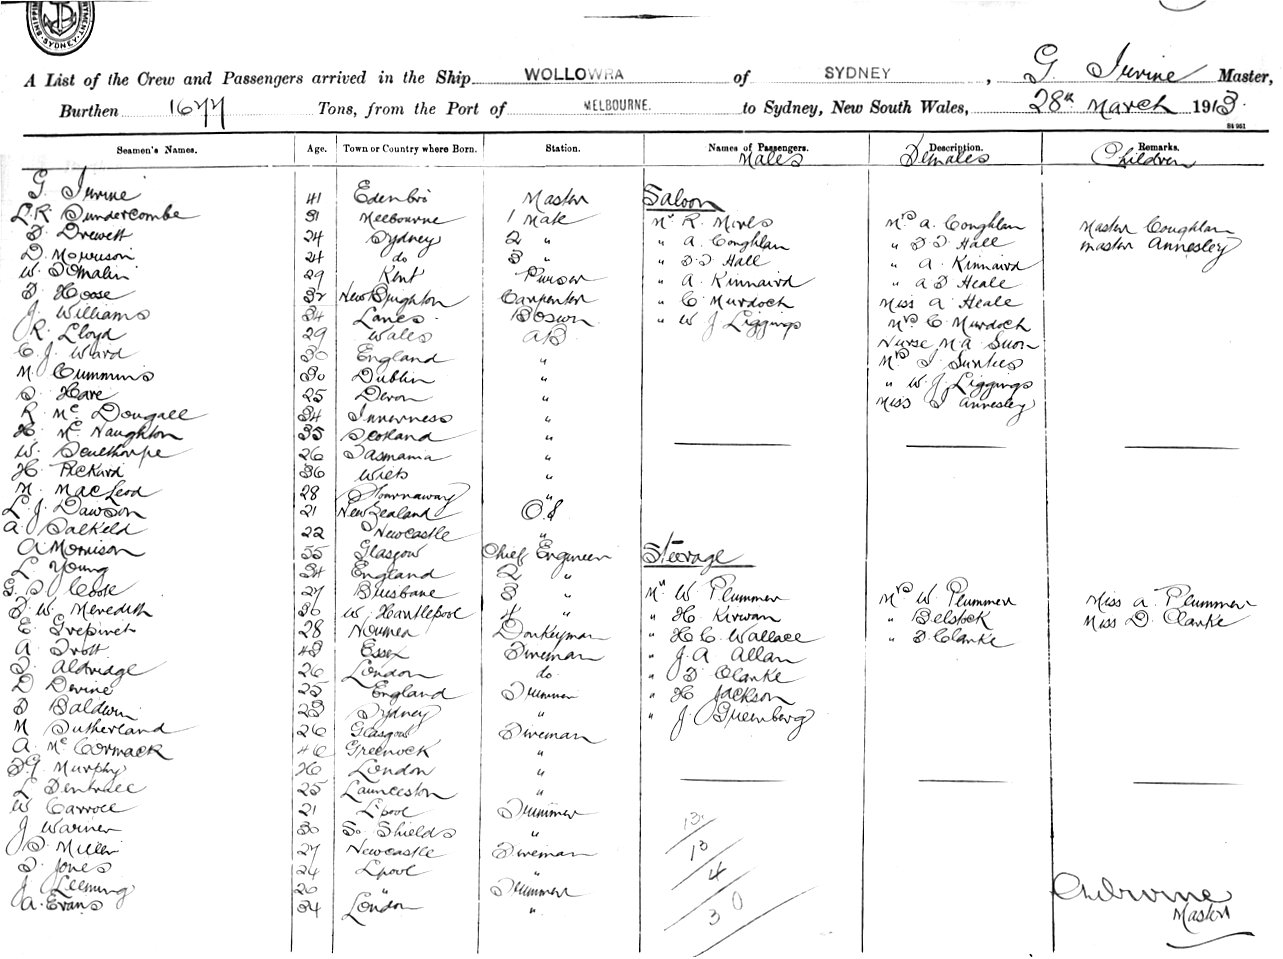 SYDNEY
A List of the Crew and Passengers arrived in the Ship WOLLOWRA of SYDNEY, G. Irvine Master,
Burthen 1677 Tons, from the Port of MELBOURNE. to Sydney, New South Wales, 28th March 1913.
84 961
Seamen's Names. Age. Town or Country where Born. Station. Names of Passengers. Description. Remarks.
Males Females Children
G. Irvine 41 Edenbro Master Saloon
L. R. Dundercombe 31 Melbourne 1 Mate Mr R. Movls Mrs A. Coghlan Master Coughlan
Drewett 24 Sydney 2 " " A. Coghlan " Hall Master Annesley
D. Morrison 24 do 3 " " Hall " A. Kinnaird
W. 29 Kent Purser " A. Kinnaird " Heale
Hoose 32 New Brighton Carpenter " C. Murdoch Miss A Heale
J. Williams 34 Lancs. Boswn " W J Liggings Mrs C. Murdoch
R. Lloyd 29 Wales AB Nurse M. A.
C. J. Ward 30 England " Mrs
M. Cummins 30 Dublin " " W. J. Liggings
Hare 25 Devon " Miss Annesley
R. Mc Dougall 34 Inverness "
H. Mc Naughton 35 Scotland "
W. 26 Tasmania "
H. Packard 36 Wilts "
M. MacLeod 28 Stornaway "
L. J. Dawson 21 New Zealand O.S
A. Salkeld 22 Newcastle "
A Morrison 55 Glasgow Chief Engineer Steerage
L. Young 34 England 2 "
G. Coose 27 Brisbane 3 " Mr W. Plummer Mrs W. Plummer Miss A. Plummer
W. Meredith 36 W. Hartlepool 4 " " H. Kirwan " Belstock Miss D. Clarke
E. Grepinet 28 Noumea Donkeyman " H. C. Wallace " Clarke
A Trott 43 Essex Fireman " J. A Allan
Aldridge 26 London do " Clarke
D Devine 25 England Trimmer " H Jackson
Baldwin 23 Sydney " " J. Greenberg
M Sutherland 26 Glasgow Fireman
A. Mc Cormack 46 Greenock "
Murphy 26 London "
L Dentrall 25 Launceston "
W Carroll 21 L'pool Trimmer
J Warner 30 So Shields " 13
Miller 27 Newcastle Fireman 13
Jones 24 L'pool " 4
J. Leeming 20 " Trimmer
A. Evans 34 London " 30
Irvine
Master